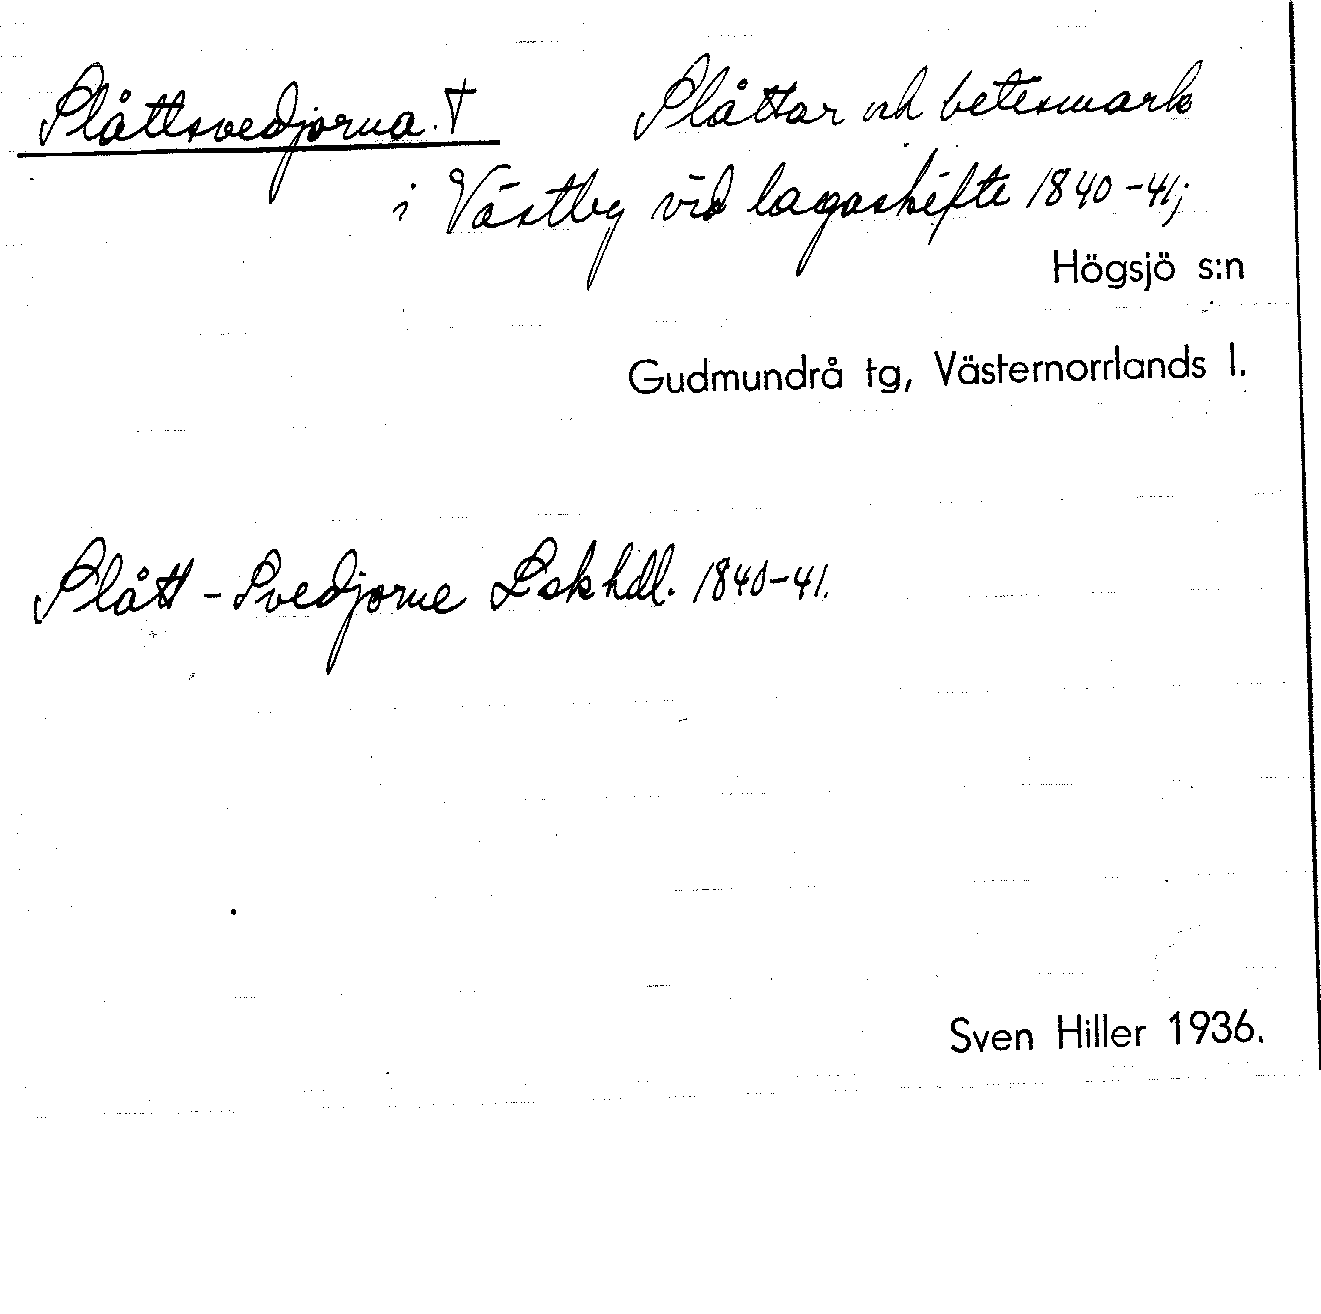 Slåttsvedjorna. †	Slåttar och betesmark
i Västby vid lagaskifte 1840-41;
Högsjö s:n
Gudmundrå tg, Västernorrlands l.
Slått-Svedjorne Lskhdl. 1840-41.
Sven Hiller 1936.